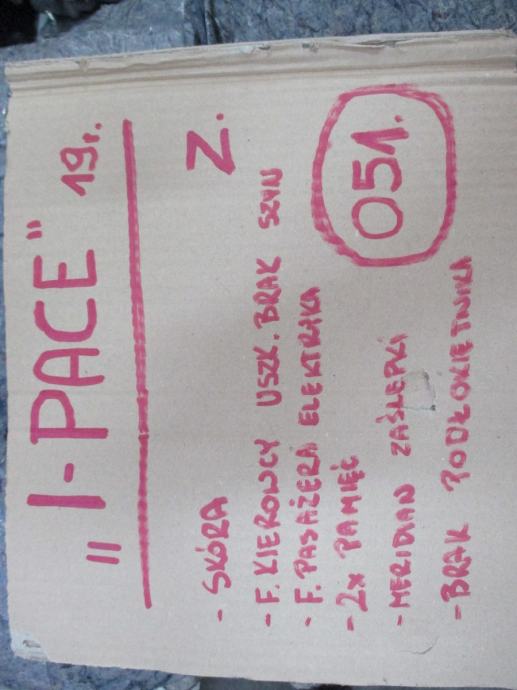 „I-PACE" 19r.
Z.
- SKÓRA
- F. KIEROWCY USZK. BRAK SZYN
- F. PASAŻERA ELEKTRYKA
- 2x PAMIĘĆ
- MERIDIAN ZAŚLEPKI
- BRAK PODŁOKIETNIKA
051.